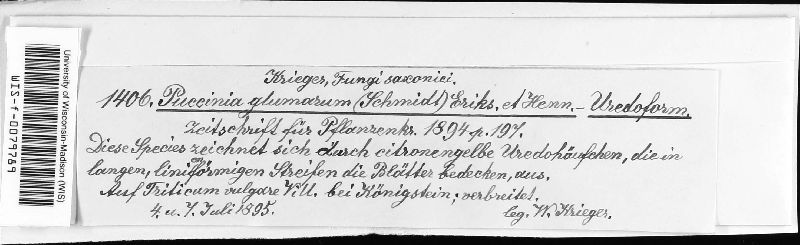 University of Wisconsin-Madison (WIS)
WIS-f-0079769
Krieger, Fungi saxonici.
1406. Puccinia glumarum (Schmidt) Eriks. et Henn. – Uredoform.
Zeitschrift für Pflanzenkr. 1894 p. 197.
Diese Species zeichnet sich durch citronengelbe Uredohäufchen, die in
langen, linienförmigen Streifen die Blätter bedecken, aus.
Auf Triticum vulgare Vill. bei Königstein; verbreitet.
4. u. 7. Juli 1895. leg. W. Krieger.